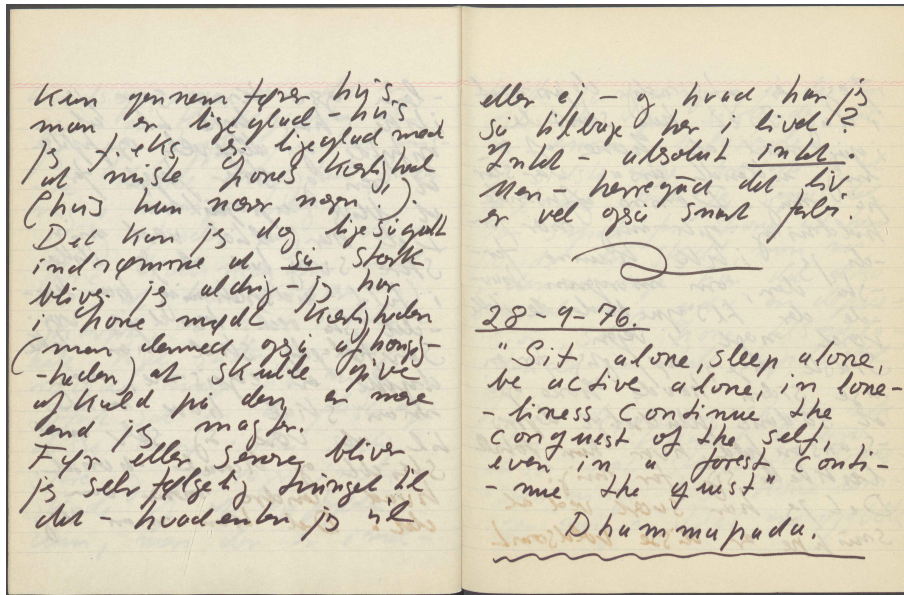 Kun gennem fører hvis
man er ligeglad - hvis
jeg f. eks. er ligeglad med
at miste hones Kærlighed
(hvis hun nærer nogen!).
Det kan jeg dog lige så godt
indrømme at så stærk
bliver jeg aldrig - jeg har
i hone mødt Kærligheden
(men dermed også afhængig-
-heden) at skulle give
afkald på den er mere
end jeg magter.
Før eller senere bliver
jeg selvfølgelig tvunget til
det - hvadenten jeg vil
eller ej - og hvad har jeg
så tilbage her i livet?
Intet - absolut intet.
Men - herregud det liv
er vel også snart forbi.
28-9-76.
"Sit alone, sleep alone,
be active alone, in lone-
-liness continue the
conquest of the self,
even in a forest conti-
-nue the quest"
Dhammapada.